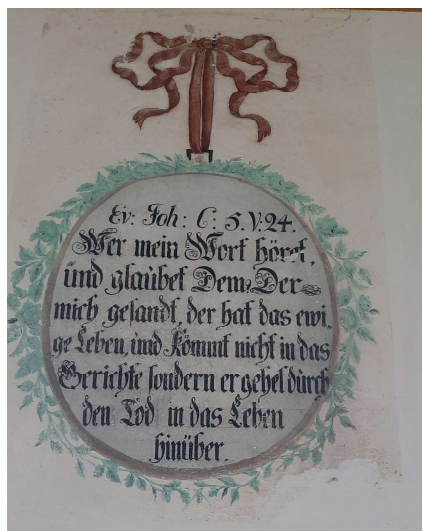 Ev: Joh: C: 5. V: 24.
Wer mein Wort höret,
und glaubet Dem, Der
mich gesandt, der hat das ewi,
ge Leben, und kömmt nicht in das
Gerichte sondern er gehet durch
den Tod in das Leben
hinüber.